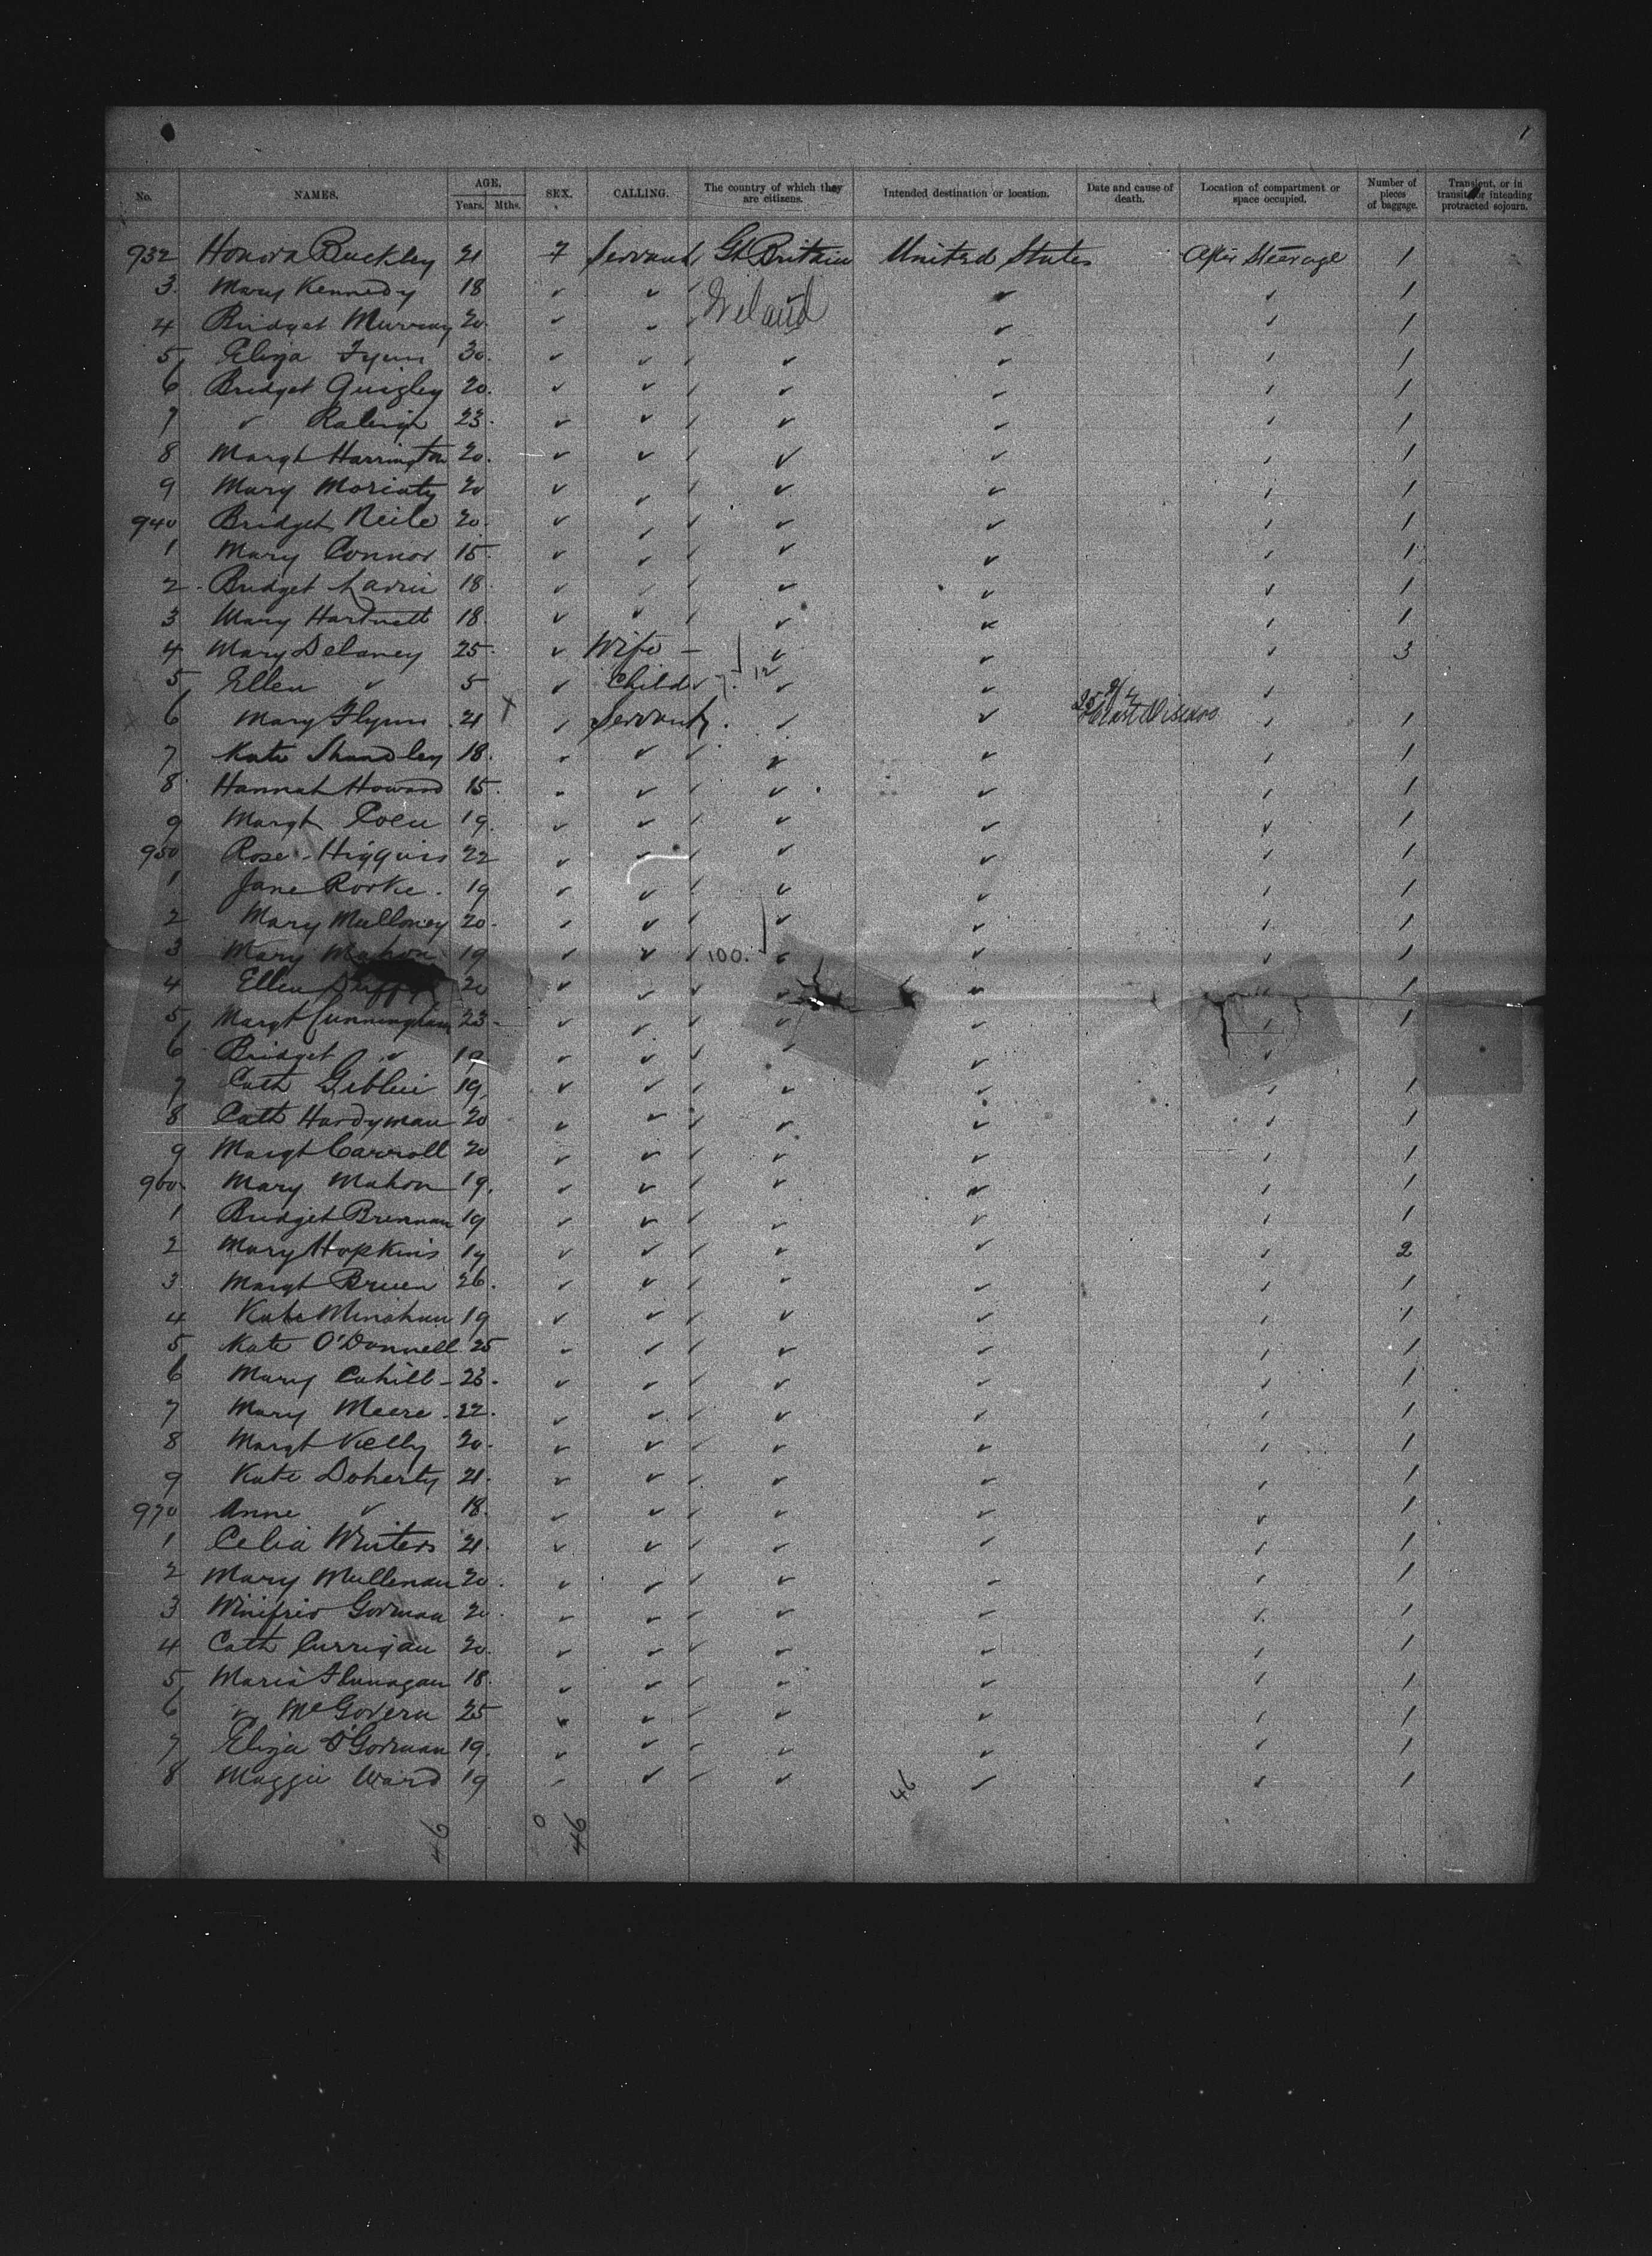 1
No. NAMES. AGE. Years. Mths. SEX. CALLING. The country of which they are citizens. Intended destination or location. Date and cause of death. Location of compartment or space occupied. Number of pieces of baggage. Transient, or in transit or intending protracted sojourn.
932 Honora Buckley 21 f Servant Gt Britain United States After Steerage 1
3 Mary Kennedy 18 ✓ ✓ Ireland ✓ ✓ 1
4 Bridget Murray 20 ✓ ✓ ✓ ✓ 1
5 Eliza 30 ✓ ✓ ✓ ✓ ✓ 1
6 Bridget Quigley 20 ✓ ✓ ✓ ✓ ✓ 1
7 ✓ Raleigh 23 ✓ ✓ ✓ ✓ ✓ 1
8 Margt Harrington 20 ✓ ✓ ✓ ✓ ✓ 1
9 Mary Moriaty 20 ✓ ✓ ✓ ✓ ✓ 1
940 Bridget Neile 20 ✓ ✓ ✓ ✓ ✓ 1
1 Mary Connor 15 ✓ ✓ ✓ ✓ ✓ 1
2 Bridget 18 ✓ ✓ ✓ ✓ ✓ 1
3 Mary Hartnett 18 ✓ ✓ ✓ ✓ ✓ 1
4 Mary Delaney 25 ✓ Wife ✓ ✓ ✓ 3
5 Ellen ✓ 5 ✓ Child 12 ✓ ✓ ✓
6 Mary Flynn 21 X ✓ Servant ✓ ✓ Heart Disease ✓ 1
7 Kate 18 ✓ ✓ ✓ ✓ ✓ 1
8 Hannah Howard 15 ✓ ✓ ✓ ✓ ✓ 1
9 Margt Coen 19 ✓ ✓ ✓ ✓ ✓ 1
950 Rose Higgins 22 ✓ ✓ ✓ ✓ ✓ 1
1 Jane Rorke 19 ✓ ✓ ✓ ✓ ✓ 1
2 Mary Mulloney 20 ✓ ✓ ✓ ✓ ✓ 1
3 Mary Mahon 19 ✓ ✓ 100. ✓ ✓ ✓ 1
4 Ellen Duffy 20 ✓ ✓ ✓ ✓ ✓ 1
5 Margt Cunningham 23 ✓ ✓ ✓ ✓ ✓ 1
6 Bridget ✓ 19 ✓ ✓ ✓ ✓ ✓
7 Cath Geblin 19 ✓ ✓ ✓ ✓ ✓ 1
8 Cath Hardyman 20 ✓ ✓ ✓ ✓ ✓ 1
9 Margt Carroll 20 ✓ ✓ ✓ ✓ ✓ 1
960 Mary Mahon 19 ✓ ✓ ✓ ✓ ✓ 1
1 Bridget Brennan 19 ✓ ✓ ✓ ✓ ✓ 1
2 Mary Hopkins 19 ✓ ✓ ✓ ✓ ✓ 2
3 Margt Bruen 26 ✓ ✓ ✓ ✓ ✓ 1
4 Kate Minahan 19 ✓ ✓ ✓ ✓ ✓ 1
5 Kate O'Donnell 25 ✓ ✓ ✓ ✓ ✓ 1
6 Mary Cahill 23 ✓ ✓ ✓ ✓ ✓ 1
7 Mary Meere 22 ✓ ✓ ✓ ✓ ✓ 1
8 Margt Kelly 20 ✓ ✓ ✓ ✓ ✓ 1
9 Kate Doherty 21 ✓ ✓ ✓ ✓ ✓ 1
970 Anne ✓ 18 ✓ ✓ ✓ ✓ ✓ 1
1 Celia Winters 21 ✓ ✓ ✓ ✓ ✓ 1
2 Mary Mullenan 20 ✓ ✓ ✓ ✓ ✓ 1
3 Winifrid Gorman 20 ✓ ✓ ✓ ✓ ✓ 1
4 Cath Currigan 20 ✓ ✓ ✓ ✓ ✓ 1
5 Maria Flanagan 18 ✓ ✓ ✓ ✓ ✓ 1
6 ✓ McGovern 25 ✓ ✓ ✓ ✓ ✓ 1
7 Eliza O'Gorman 19 ✓ ✓ ✓ ✓ ✓ 1
8 Maggie Ward 19 ✓ ✓ ✓ ✓ ✓ 1
46 0 46 46